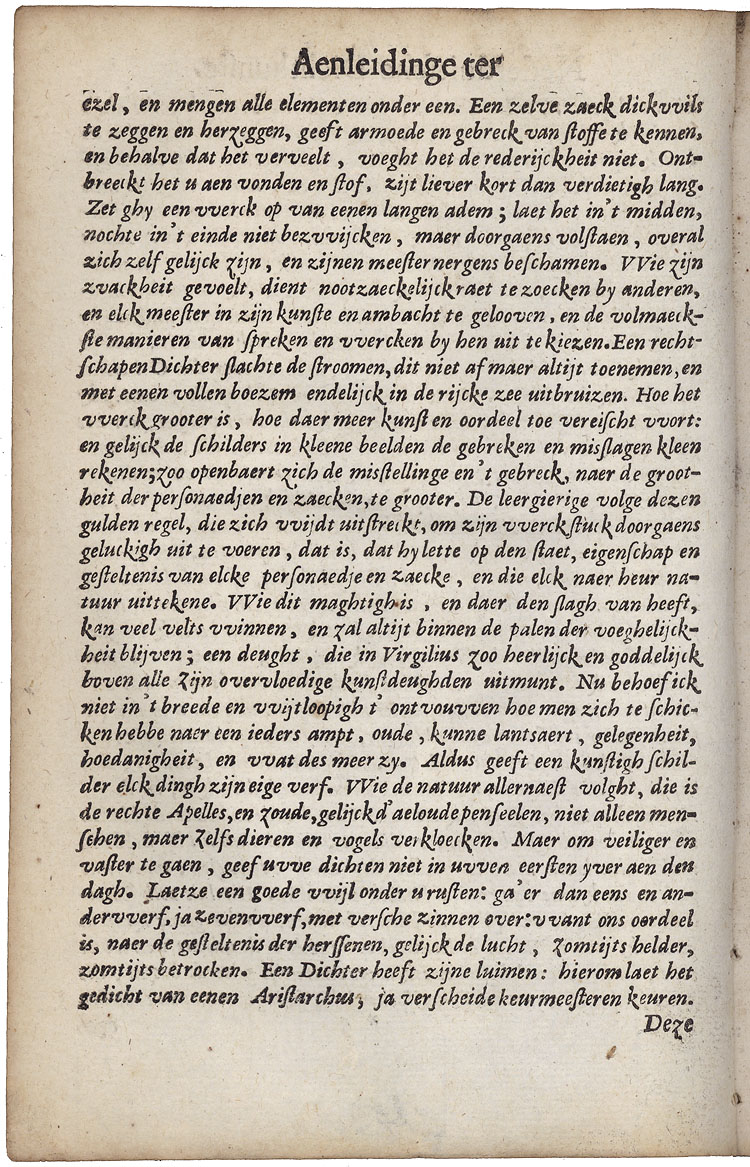 Aenleidinge ter
ezel, en mengen alle elementen onder een. Een zelve zaeck dickvvils
te zeggen en herzeggen, geeft armoede en gebreck van stoffe te kennen,
en behalve dat het verveelt, voeght het de rederijckheit niet. Ont-
breeckt het u aen vonden en stof, zijt liever kort dan verdietigh lang.
Zet ghy een vverck op van eenen langen adem; laet het in't midden,
nochte in't einde niet bezvvijcken, maer doorgaens volstaen, overal
zich zelf gelijck zijn, en zijnen meester nergens beschamen. VVie zijn
zvackheit gevoelt, dient nootzaeckelijck raet te zoecken by anderen,
en elck meester in zijn kunste en ambacht te gelooven, en de volmaeck-
ste manieren van spreken en vvercken by hen uit te kiezen. Een recht-
schapen Dichter slachte de stroomen, dit niet af maer altijt toenemen, en
met eenen vollen boezem endelijck in de rijcke zee uitbruizen. Hoe het
vverck grooter is, hoe daer meer kunst en oordeel toe vereischt vvort:
en gelijck de schilders in kleene beelden de gebreken en misslagen kleen
rekenen; zoo openbaert zich de misstellinge en't gebreck, naer de groot-
heit der personaedjen en zaecken, te grooter. De leergierige volge dezen
gulden regel, die zich vvijdt uitstreckt, om zijn vverckstuck doorgaens
geluckigh uit te voeren, dat is, dat hy lette op den staet, eigenschap en
gesteltenis van elcke personaedje en zaecke, en die elck naer heur na-
tuur uittekene. VVie dit maghtigh is, en daer den slagh van heeft,
kan veel velts vvinnen, en zal altijt binnen de palen der voeghelijck-
heit blijven; een deught, die in Virgilius zoo heerlijck en goddelijck
boven alle zijn overvloedige kunstdeughden uitmunt. Nu behoef ick
niet in't breede en vvijtloopigh t' ontvouvven hoe men zich te schic-
ken hebbe naer een ieders ampt, oude, kunne lantsaert, gelegenheit,
hoedanigheit, en vvat des meer zy. Aldus geeft een kunstigh schil-
der elck dingh zijn eige verf. VVie de natuur allernaest volght, die is
de rechte Apelles, en zoude, gelijck d'aeloude penseelen, niet alleen men-
schen, maer zelfs dieren en vogels verkloecken. Maer om veiliger en
vaster te gaen, geef uvve dichten niet in uvven eersten yver aen den
dagh. Laetze een goede vvijl onder u rusten: ga'er dan eens en an-
dervverf, ja zevenvverf, met versche zinnen over: vvant ons oordeel
is, naer de gesteltenis der herssenen, gelijck de lucht, zomtijts helder,
zomtijts betrocken. Een Dichter heeft zijne luimen: hierom laet het
gedicht van eenen Aristarchus, ja verscheide keurmeesteren keuren.
Deze